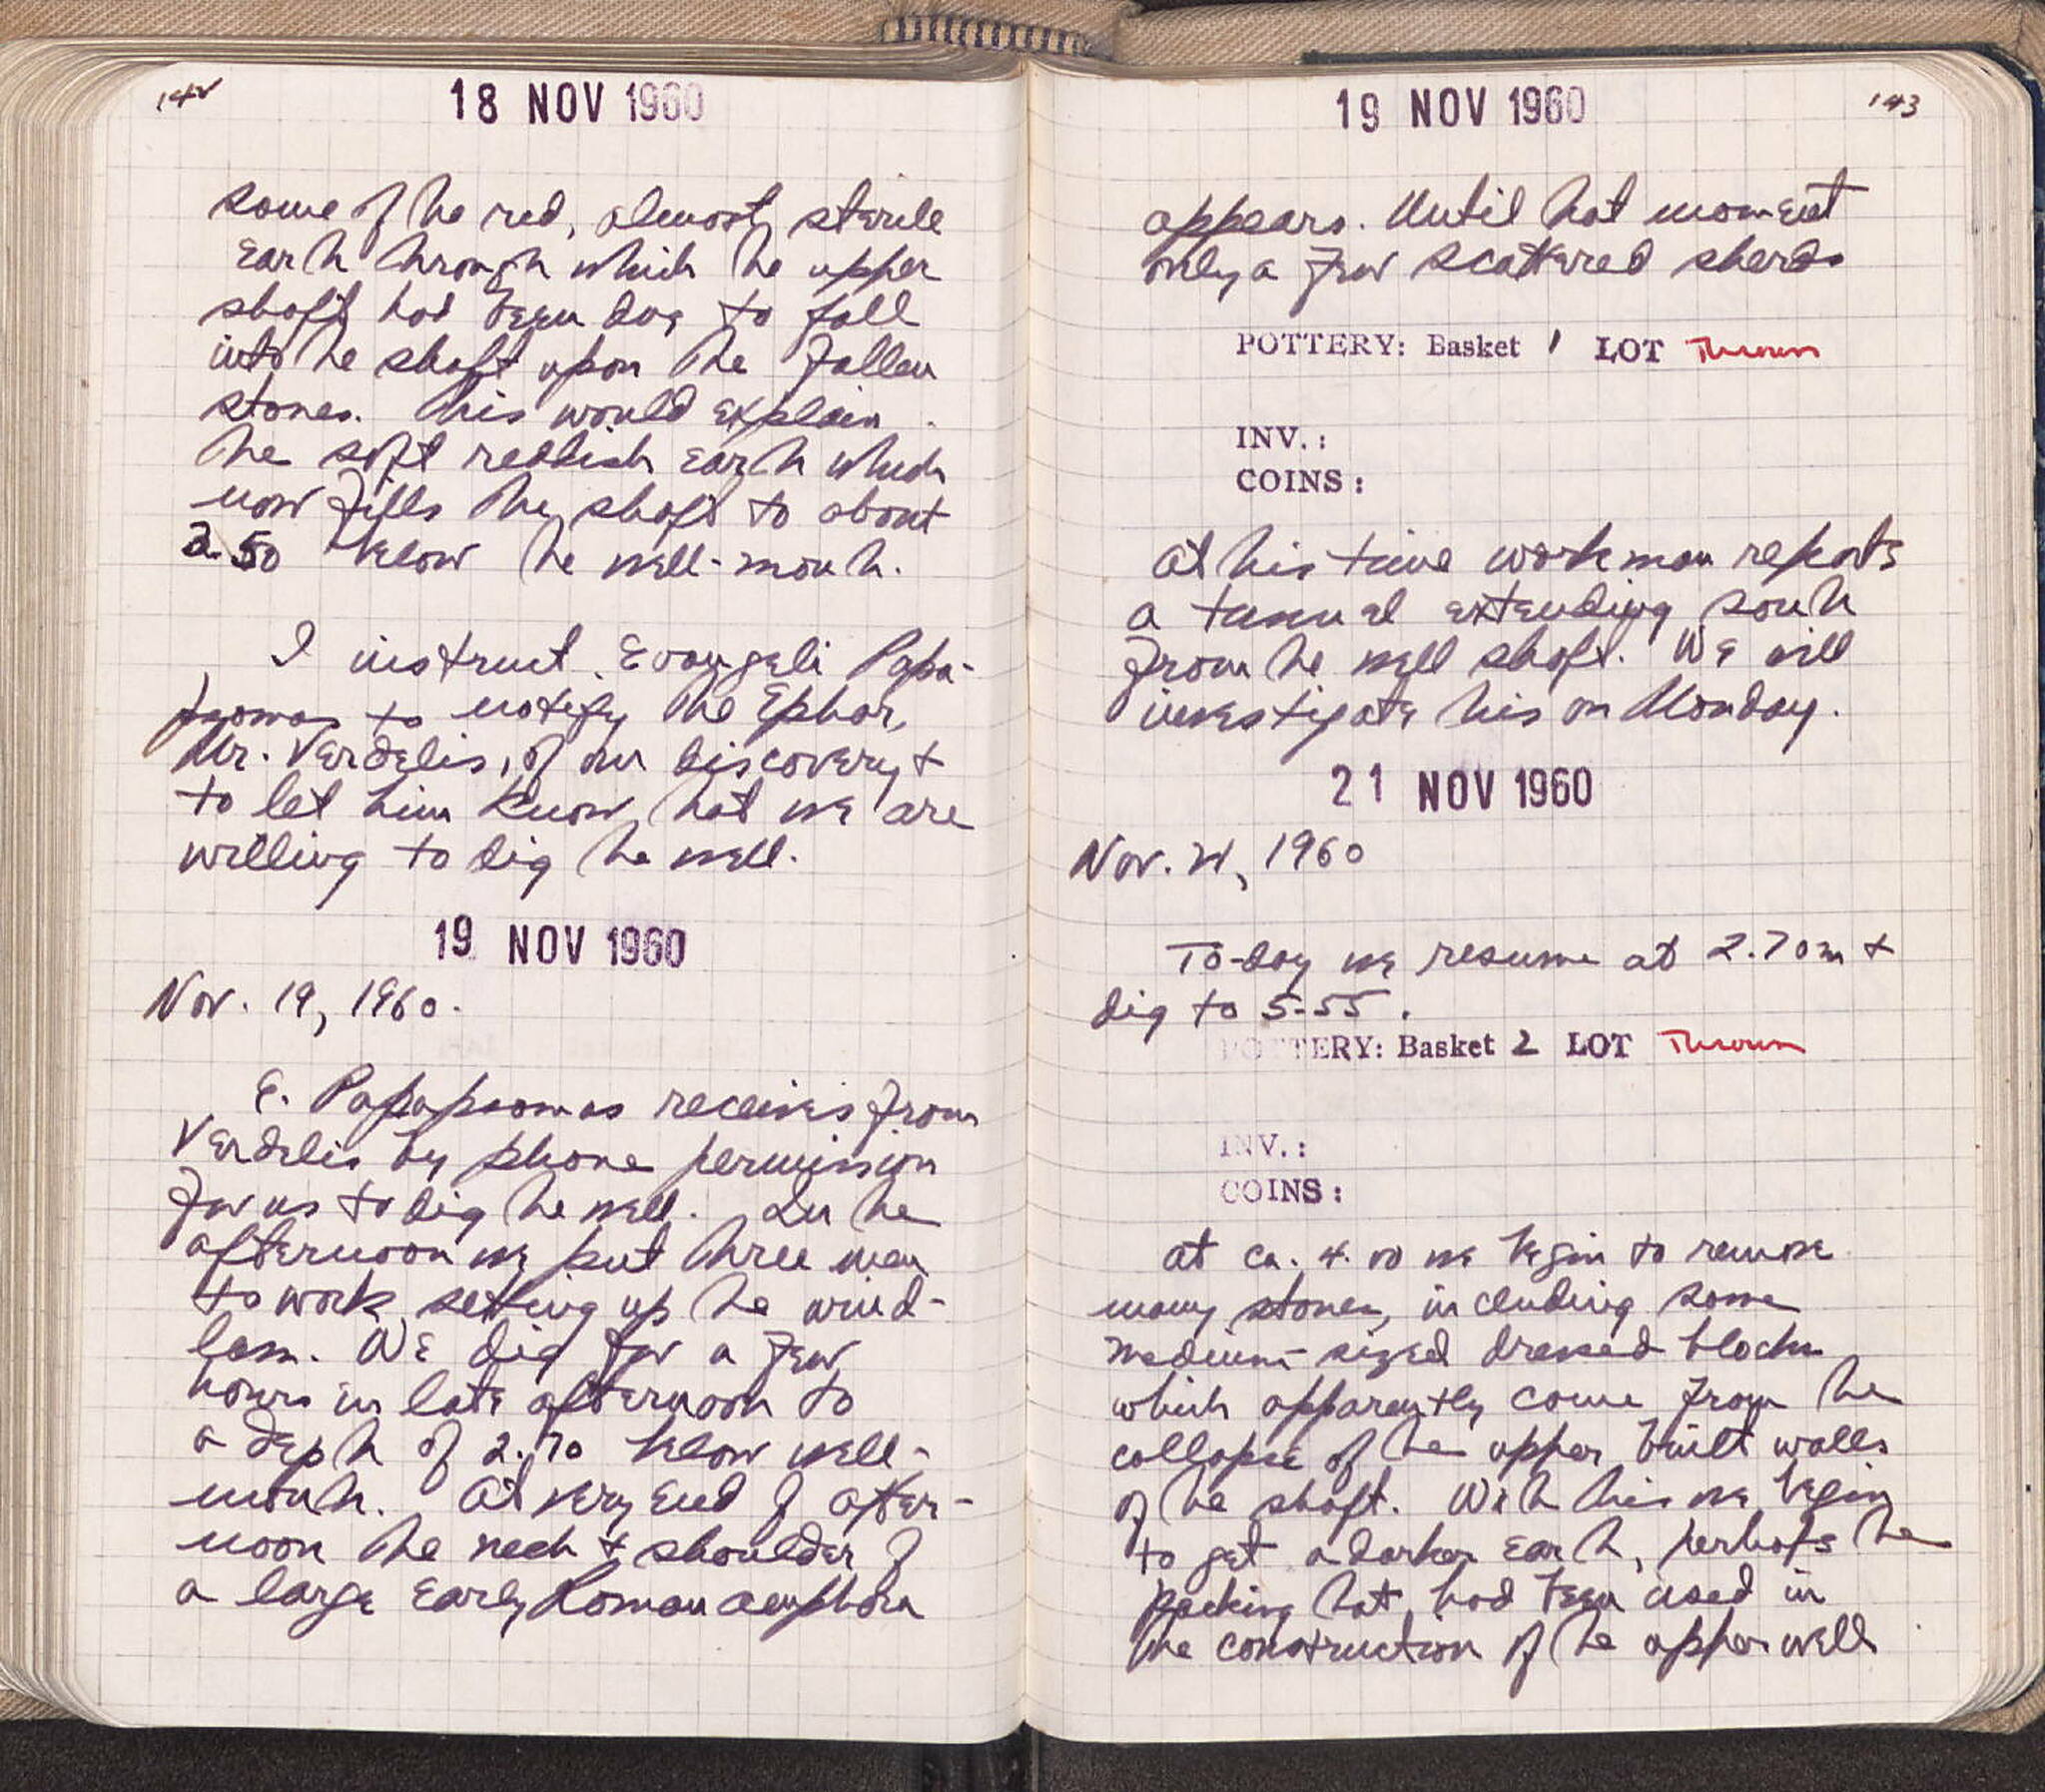 142
18 NOV 1960
some of the red, almost sterile
earth through which the upper
shaft had been dug to fall
into the shaft upon the fallen
stones. This would explain
the soft reddish earth which
now fills the shaft to about
2.50 below the well-mouth.
I instruct Evangeli Papa-
to notify the Ephor,
Mr. Verdelis, of our discovery +
to let him know that we are
willing to dig the well.
19 NOV 1960
Nov. 19, 1960.
E. receives from
Verdelis by phone permission
for us to dig the well. In the
afternoon we put three men
to work setting up the wind-
lass. We dig for a few
hours in late afternoon to
a depth of 2.70 below well-
mouth. At very end of after-
noon the neck + shoulder of
a large Early Roman amphora
19 NOV 1960
143
appears. Until that moment
only a few scattered sherds
POTTERY: Basket 1 LOT Thrown
INV.:
COINS:
At this time workman reports
a tunnel extending south
from the well shaft. We will
investigate this on Monday.
21 NOV 1960
Nov. 21, 1960
To-day we resume at 2.70m +
dig to 5.55.
POTTERY: Basket 2 LOT Thrown
INV.:
COINS:
At ca. 4.00 we begin to remove
many stones, including some
medium-sized dressed blocks
which apparently come from the
collapse of the upper built walls
of the shaft. With this we begin
to get a darker earth, perhaps the
packing that had been used in
the construction of the upper well